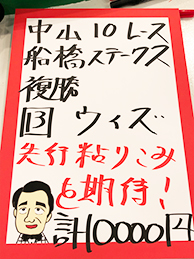 中山10レース
船橋ステークス
複勝
3 ウィズ
先行粘りこみ
を期待!
計10000円